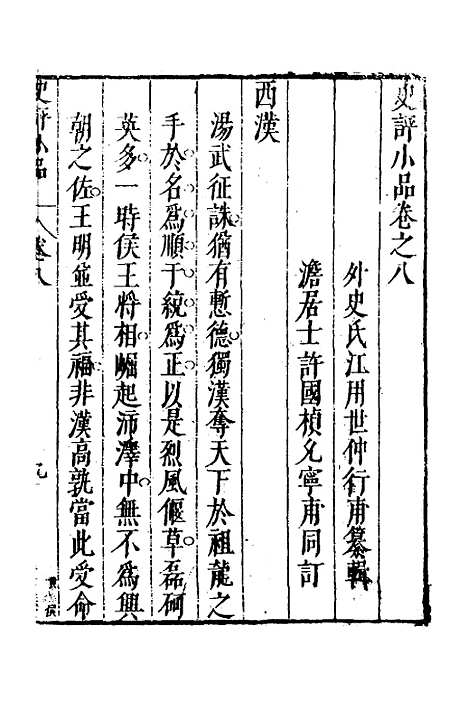 史評小品卷之八
外史氏江用世仲行甫纂輯
澹居士許國楨允寧甫同訂
西漢
湯武征誅猶有慙德獨漢奪天下於祖龍之
手於名爲順于統爲正以是烈風偃草磊砢
英多一時侯王將相崛起沛澤中無不爲興
朝之佐王明並受其福非漢高孰當此受命
史評小品
卷八